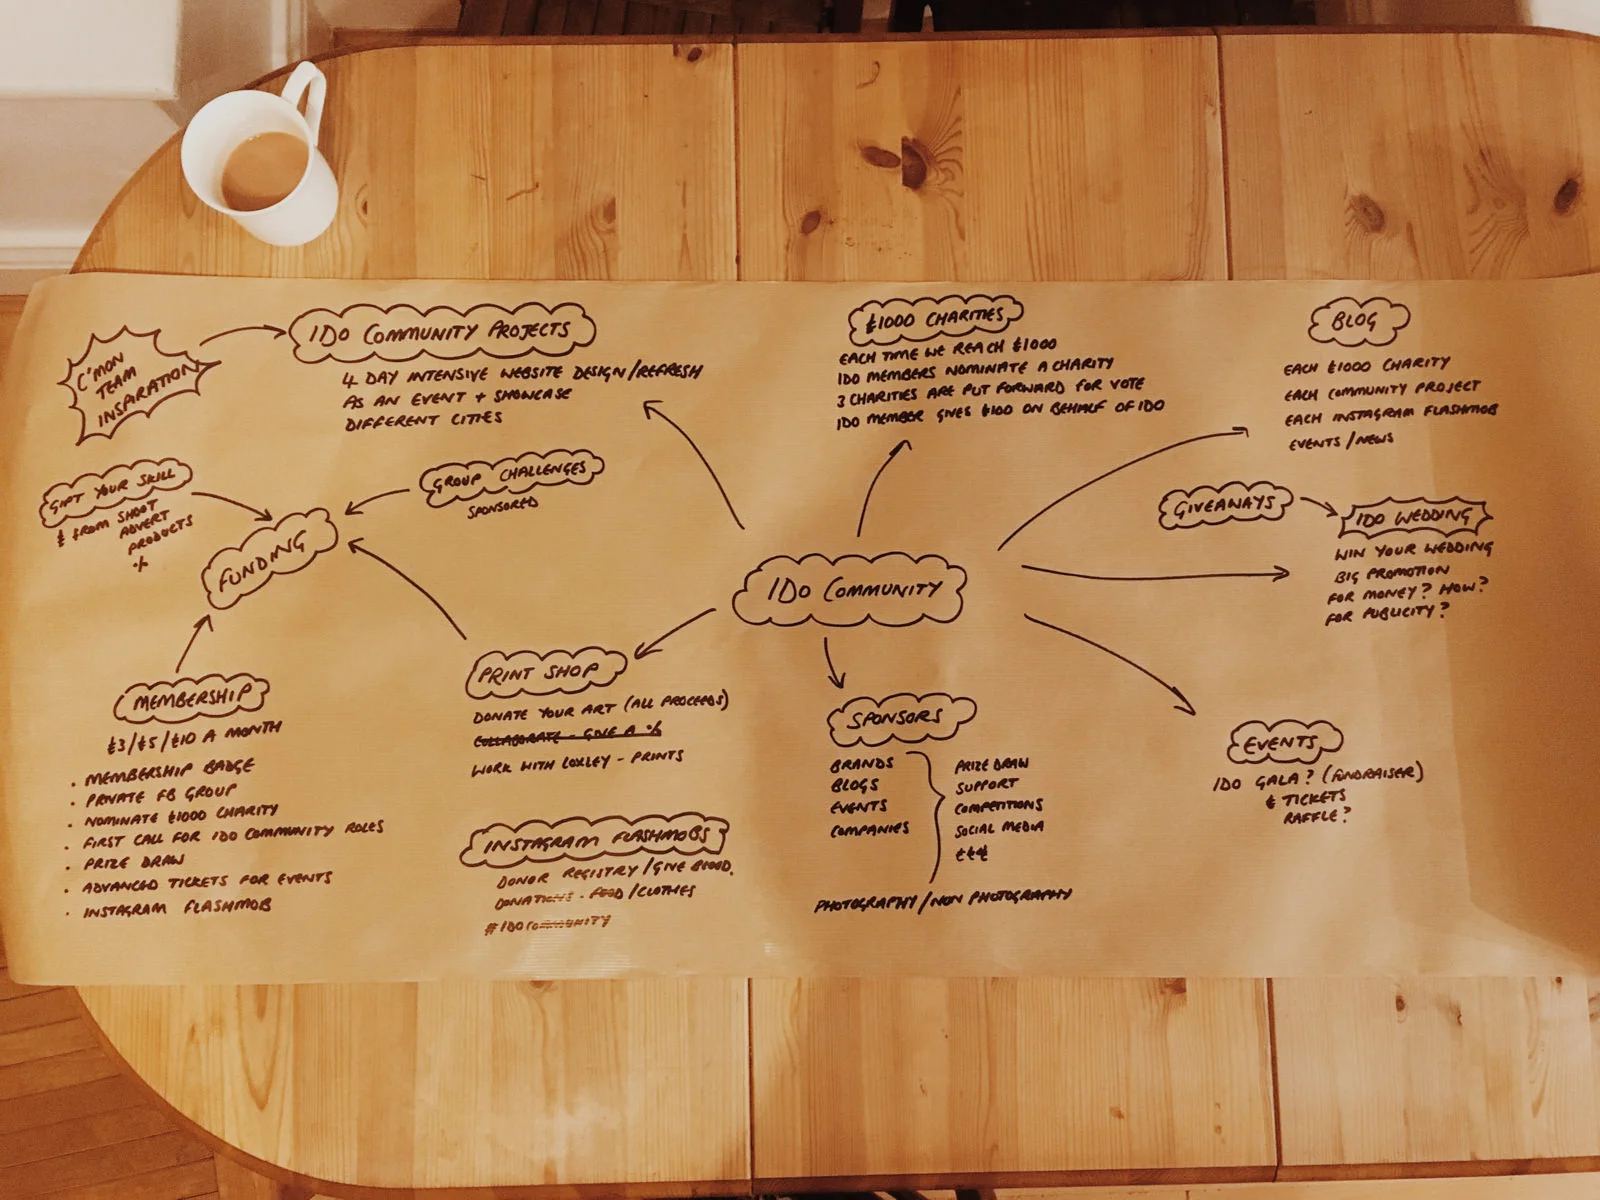 C'MON
TEAM
INSPIRATION
IDO COMMUNITY PROJECTS
4 DAY INTENSIVE WEBSITE DESIGN/REFRESH
AS AN EVENT + SHOWCASE
DIFFERENT CITIES
£1000 CHARITIES
EACH TIME WE REACH £1000
IDO MEMBERS NOMINATE A CHARITY
3 CHARITIES ARE PUT FORWARD FOR VOTE
IDO MEMBER GIVES £100 ON BEHALF OF IDO
BLOG
EACH £1000 CHARITY
EACH COMMUNITY PROJECT
EACH INSTAGRAM FLASHMOB
EVENTS/NEWS
GIFT YOUR SKILL
£ FROM SHOOT
ADVERT
PRODUCTS
%
GROUP CHALLENGES
SPONSORED
FUNDING
GIVEAWAYS
IDO WEDDING
WIN YOUR WEDDING
BIG PROMOTION
FOR MONEY? HOW?
FOR PUBLICITY?
IDO COMMUNITY
MEMBERSHIP
£3/£5/£10 A MONTH
. MEMBERSHIP BADGE
. PRIVATE FB GROUP
. NOMINATE £1000 CHARITY
. FIRST CALL FOR IDO COMMUNITY ROLES
. PRIZE DRAW
. ADVANCED TICKETS FOR EVENTS
. INSTAGRAM FLASHMOB
PRINT SHOP
DONATE YOUR ART (ALL PROCEEDS)
COLLABORATE - GIVE A %
WORK WITH LOXLEY - PRINTS
INSTAGRAM FLASHMOBS
DONOR REGISTRY/GIVE BLOOD.
DONATIONS - FOOD/CLOTHES
#IDOCOMMUNITY
SPONSORS
BRANDS
BLOGS
EVENTS
COMPANIES
PRIZE DRAW
SUPPORT
COMPETITIONS
SOCIAL MEDIA
£££
PHOTOGRAPHY/NON PHOTOGRAPHY
EVENTS
IDO GALA? (FUNDRAISER)
£ TICKETS
RAFFLE?